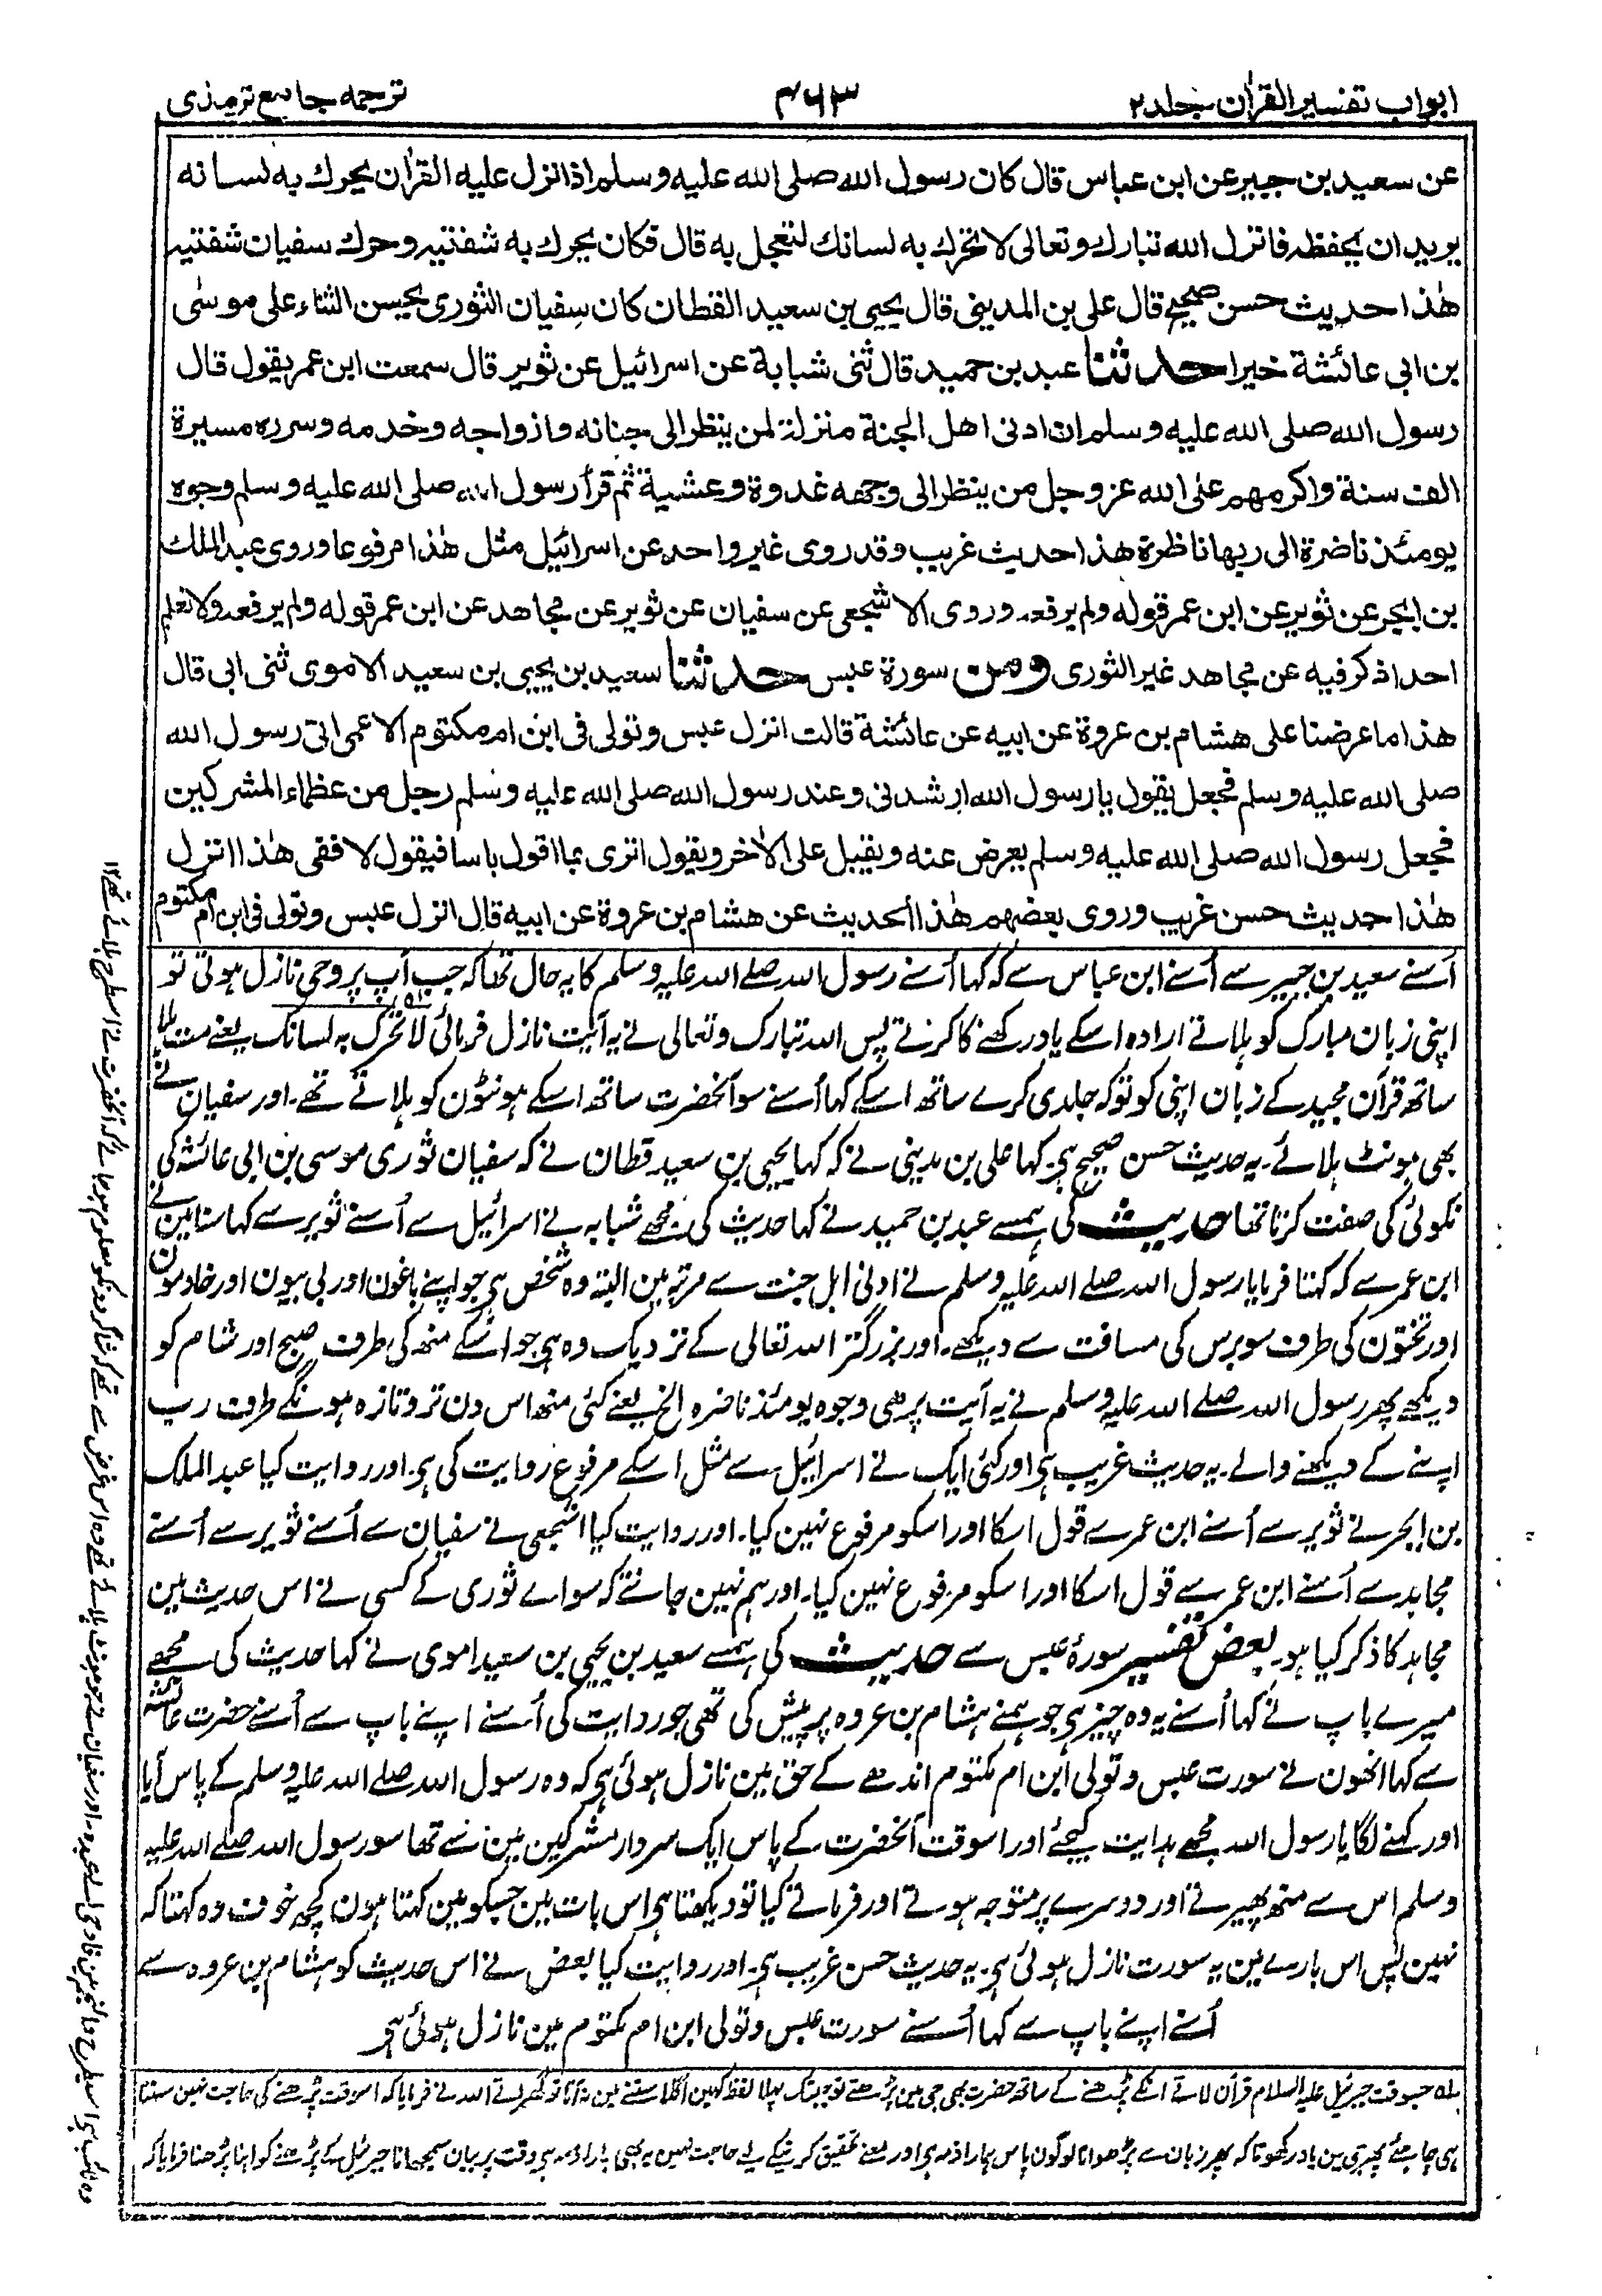 ابواب تفسیر القران جلد ۲
۴۶۳
ترجمہ جامع ترمذی
عن سعید بن جبیر عن ابن عباس قال کان رسول الله صلی الله علیه وسلم اذا نزل علیه القران یحرك به لسانه
یرید ان یحفظه فانزل الله تبارك وتعالی لا تحرك به لسانك لتعجل به قال فکان یحرك به شفتیه وحرك سفیان شفتیه
هٰذا حدیث حسن صحیح قال علی بن المدینی قال یحیی بن سعید القطان کان سفیان الثوری یحسن الثناء علی موسٰی
بن ابی عائشة خیرا حدثنا عبد بن حمید قال ثنی شبابة عن اسرائیل عن ثویر قال سمعت ابن عمر یقول قال
رسول الله صلی الله علیه وسلم ان ادنی اهل الجنة منزلة لمن ینظر الی جنانه وازواجه وخدمه وسرره مسیرة
الف سنة واکرمهم علی الله عز وجل من ینظر الی وجهه غدوة وعشیة ثم قرأ رسول الله صلی الله علیه وسلم وجوه
یومئذ ناضرة الی ربها ناظرة هذا حدیث غریب وقد روی غیر واحد عن اسرائیل مثل هٰذا مرفوعا وروی عبد الملك
بن ابجر عن ثویر عن ابن عمر قوله ولم یرفعه وروی الاشجعی عن سفیان عن ثویر عن مجاهد عن ابن عمر قوله ولم یرفعه ولا نعلم
احدا ذکر فیه عن مجاهد غیر الثوری ومن سورة عبس حدثنا سعید بن یحیی بن سعید الاموی ثنی ابی قال
هذا ما عرضنا علی هشام بن عروة عن ابیه عن عائشة قالت انزل عبس وتولی فی ابن ام مکتوم الاعمی اتی رسول الله
صلی الله علیه وسلم فجعل یقول یا رسول الله ارشدنی وعند رسول الله صلی الله علیه وسلم رجل من عظماء المشرکین
فجعل رسول الله صلی الله علیه وسلم یعرض عنه ویقبل علی الاٰخر ویقول اتری بما اقول باسا فیقول لا ففی هٰذا انزل
هٰذا حدیث حسن غریب وروی بعضهم هٰذا الحدیث عن هشام بن عروة عن ابیه قال انزل عبس وتولی فی ابن ام مکتوم
اُسنے سعید بن جبیر سے اُسنے ابن عباس سے کہ کہا اُسنے رسول اللہ صلے اللہ علیہ وسلم کا یہ حال تھا کہ جب آپ پر وحی نازل ہوتی تو
اپنی زبان مبارک کو ہلاتے ارادہ اسکے یاد رکھنے کا کرتے پس اللہ تبارک وتعالی نے یہ آیت نازل فرمائی لا تحرک بہ لسانک یعنے مت ہلا
ساتھ قرآن مجید کے زبان اپنی کو تو کہ جلدی کرے ساتھ اسکے کہا اُسنے سو آنحضرت ساتھ اسکے ہونٹون کو ہلاتے تھے۔ اور سفیان نے
بھی ہونٹ ہلائے۔ یہ حدیث حسن صحیح ہی۔ کہا علی بن مدینی نے کہ کہا یحیی بن سعید قطان نے کہ سفیان ثوری موسی بن ابی عائشہ کی
نکوئی کی صفت کرتا تھا حدیث کی ہمسے عبد بن حمید نے کہا حدیث کی مجھے شبابہ نے اسرائیل سے اُسنے ثویر سے کہا سنا مین نے
ابن عمر سے کہ کہتا فرمایا رسول اللہ صلے اللہ علیہ وسلم نے ادنی اہل جنت سے مرتبہ مین البتہ وہ شخص ہی جو اپنے باغون اور بی بیون اور خادمون
اور تختون کی طرف سو برس کی مسافت سے دیکھے۔ اور بزرگتر اللہ تعالی کے نزدیک وہ ہی جو اُسکے منھ کی طرف صبح اور شام کو
دیکھے پھر رسول اللہ صلے اللہ علیہ وسلم نے یہ آیت پڑھی وجوہ یومئذ ناضرہ الخ یعنے کئی منھ اس دن تروتازہ ہونگے طرف رب
اپنے کے دیکھنے والے۔ یہ حدیث غریب ہی اور کئی ایک نے اسرائیل سے مثل اسکے مرفوع روایت کی ہی۔ اور روایت کیا عبد الملک
بن ابجر نے ثویر سے اُسنے ابن عمر سے قول اسکا اور اسکو مرفوع نہین کیا۔ اور روایت کیا اشجعی نے سفیان سے اُسنے ثویر سے اُسنے
مجاہد سے اُسنے ابن عمر سے قول اسکا اور اسکو مرفوع نہین کیا۔ اور ہم نہین جانتے کہ سواے ثوری کے کسی نے اس حدیث مین
مجاہد کا ذکر کیا ہو۔ بعض تفسیر سورۂ عبس سے حدیث کی ہمسے سعید بن یحیی بن سعید اموی نے کہا حدیث کی مجھے
میرے باپ نے کہا اُسنے یہ وہ چیز ہی جو ہمنے ہشام بن عروہ پر پیش کی تھی جو روایت کی اُسنے اپنے باپ سے اُسنے حضرت عائشہ
سے کہا انھون نے سورت عبس وتولی ابن ام مکتوم اندھے کے حق مین نازل ہوئی ہی کہ وہ رسول اللہ صلے اللہ علیہ وسلم کے پاس آیا
اور کہنے لگا یا رسول اللہ مجھے ہدایت کیجئے اور اسوقت آنحضرت کے پاس ایک سردار مشرکین مین سے تھا سو رسول اللہ صلے اللہ علیہ
وسلم اس سے منھ پھیرتے اور دوسرے پر متوجہ ہوتے اور فرماتے کیا تو دیکھتا ہی اس بات مین جسکو مین کہتا ہون کچھ خوف وہ کہتا کہ
نہین پس اس بارے مین یہ سورت نازل ہوئی ہی۔ یہ حدیث حسن غریب ہی۔ اور روایت کیا بعض نے اس حدیث کو ہشام بن عروہ سے
اُسنے اپنے باپ سے کہا اُسنے سورت عبس وتولی ابن ام مکتوم مین نازل ہوئی ہی
جسوقت جبرئیل علیہ السلام قرآن لاتے انکے پڑھنے کے ساتھ حضرت بھی جی مین پڑھتے تو جبتک پہلا لفظ کہین اگلا سننے مین نہ آتا تو گھبراتے اللہ نے فرمایا کہ اسوقت پڑھنے کی حاجت نہین سننا
ہی چاہئے پھر جی مین یاد رکھوتا کہ پھر زبان سے پڑھوانا لوگون پاس ہمارا ذمہ ہی اور معنے تحقیق کرنیکے لیے حاجت نہین یہ بھی ہمارا ذمہ ہی وقت پر بیان سمجھانا جبرئیل کے پڑھنے کو اپنا پڑھنا فرمایا کہ